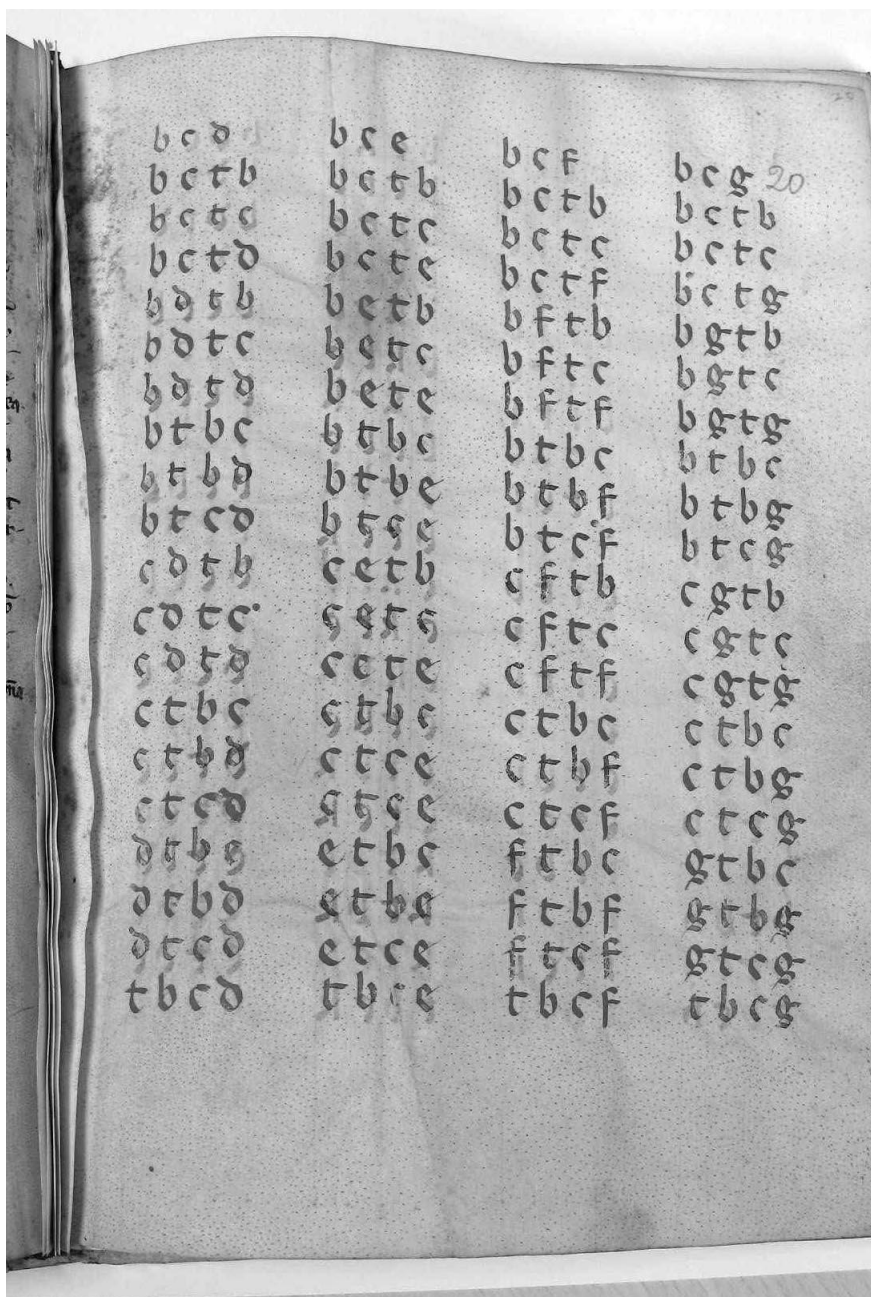 b c d
b c t b
b c t c
b c t d
b d t b
b d t c
b d t d
b t b c
b t b d
b t c d
c d t b
c d t c
c d t d
c t b c
c t b d
c t c d
d t b c
d t b d
d t c d
t b c d
b c e
b c t b
b c t c
b c t e
b e t b
b e t c
b e t e
b t b c
b t b e
b t c e
c e t b
c e t c
c e t e
c t b c
c t c e
c t c e
e t b c
e t b e
e t c e
t b c e
b c f
b c t b
b c t c
b c t f
b f t b
b f t c
b f t f
b t b c
b t b f
b t c f
c f t b
c f t c
c f t f
c t b c
c t b f
c t c f
f t b c
f t b f
f t c f
t b c f
b c g
20
b c t b
b c t c
b c t g
b g t b
b g t c
b g t g
b t b c
b t b g
b t c g
c g t b
c g t c
c g t g
c t b c
c t b g
c t c g
g t b c
g t b g
g t c g
t b c g